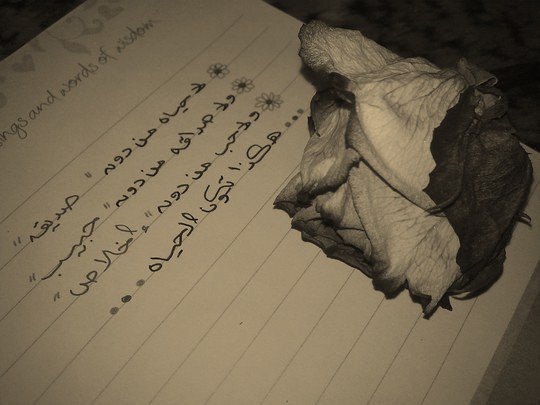 ings and words of wisdom
لا حياه من دون " صديقه "
ولا صداقه من دون " حبيب "
ولا حب من دون " إخلاص "
هكذا تكون الحياه